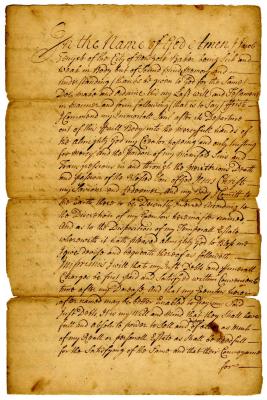 In the Name of God Amen I Jacob
of the City of New York Baker being Sick and
weak in Body but of Sound Mind Memory and
understanding thanks be given to God for the Same
Do make and ordaine this my Last will and Testament
in manner and form following that is to Say First
I Commend my Immortall Soul after its Departure
out of this fraill Body into the mercyfull hands of
the almighty God my Creator hoping and only trusting
for mercy and the pardon of my manifold Sins and
transgressions in and through the meritorious Death
and passion of the Blessed Son Jesus Christ
my Saviour and Redeemer and my Body to
the Earth there to be Decently Buried according to
the Discretion of my Executors hereinafter named
and as to the Disposition of my Temporall Estate
wherewith it hath pleased almighty God to Bless me
I give Devise and bequeath thereof as followeth
Imprimis I will that my Just Debts and funerall
Charges be first paid and Satisfyed within Convenient
time after my Decease and that my Executors herein
after named may be better Enabled to pay my Said
Just Debts It is my will and mind that they Shall have
full and absolute power to Sell and dispose as much
of my Reall or personall Estate as Shall be needfull
for the Satisfying of the Same and that their Conveyance
for